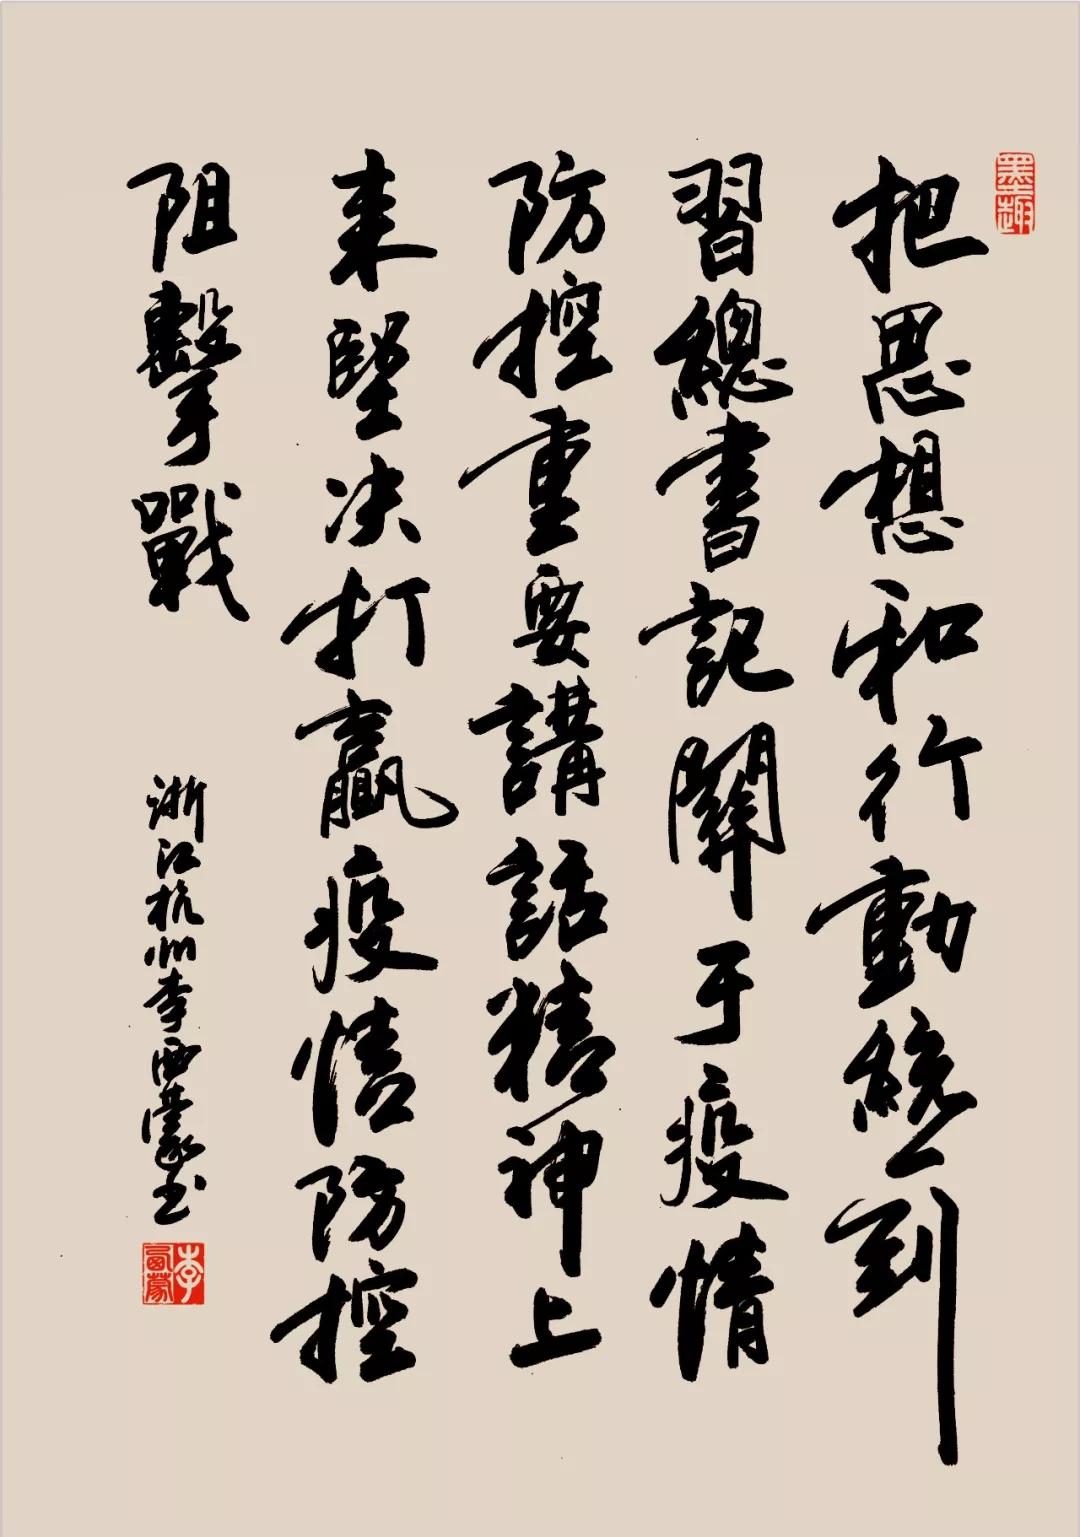 墨趣
把思想和行動統一到
習總書記關于疫情
防控重要講話精神上
来堅决打贏疫情防控
阻擊戰
浙江杭州李西蒙书
李西蒙